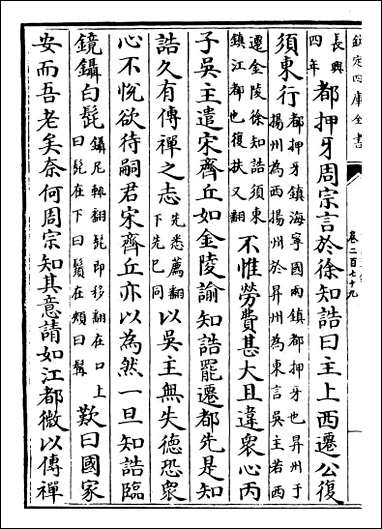 欽定四庫全書
卷二百七十九
長興四年都押牙周宗言於徐知誥曰主上西遷公復
須東行都押牙鎮海寧國兩鎮都押牙也昇州于揚州為西揚州於昇州為東言吳主若西
遷金陵徐知誥須東鎮江都也復扶又翻不惟勞費甚大且違衆心丙
子吳主遣宋齊丘如金陵諭知誥罷遷都先是知
誥久有傳禪之志先悉薦翻下先已同以吳主無失德恐衆
心不悅欲待嗣君宋齊丘亦以為然一旦知誥臨
鏡鑷白髭鑷尼輒翻髭即移翻在口上曰髭在下曰鬚在頰曰髯歎曰國家
安而吾老矣奈何周宗知其意請如江都微以傳禪